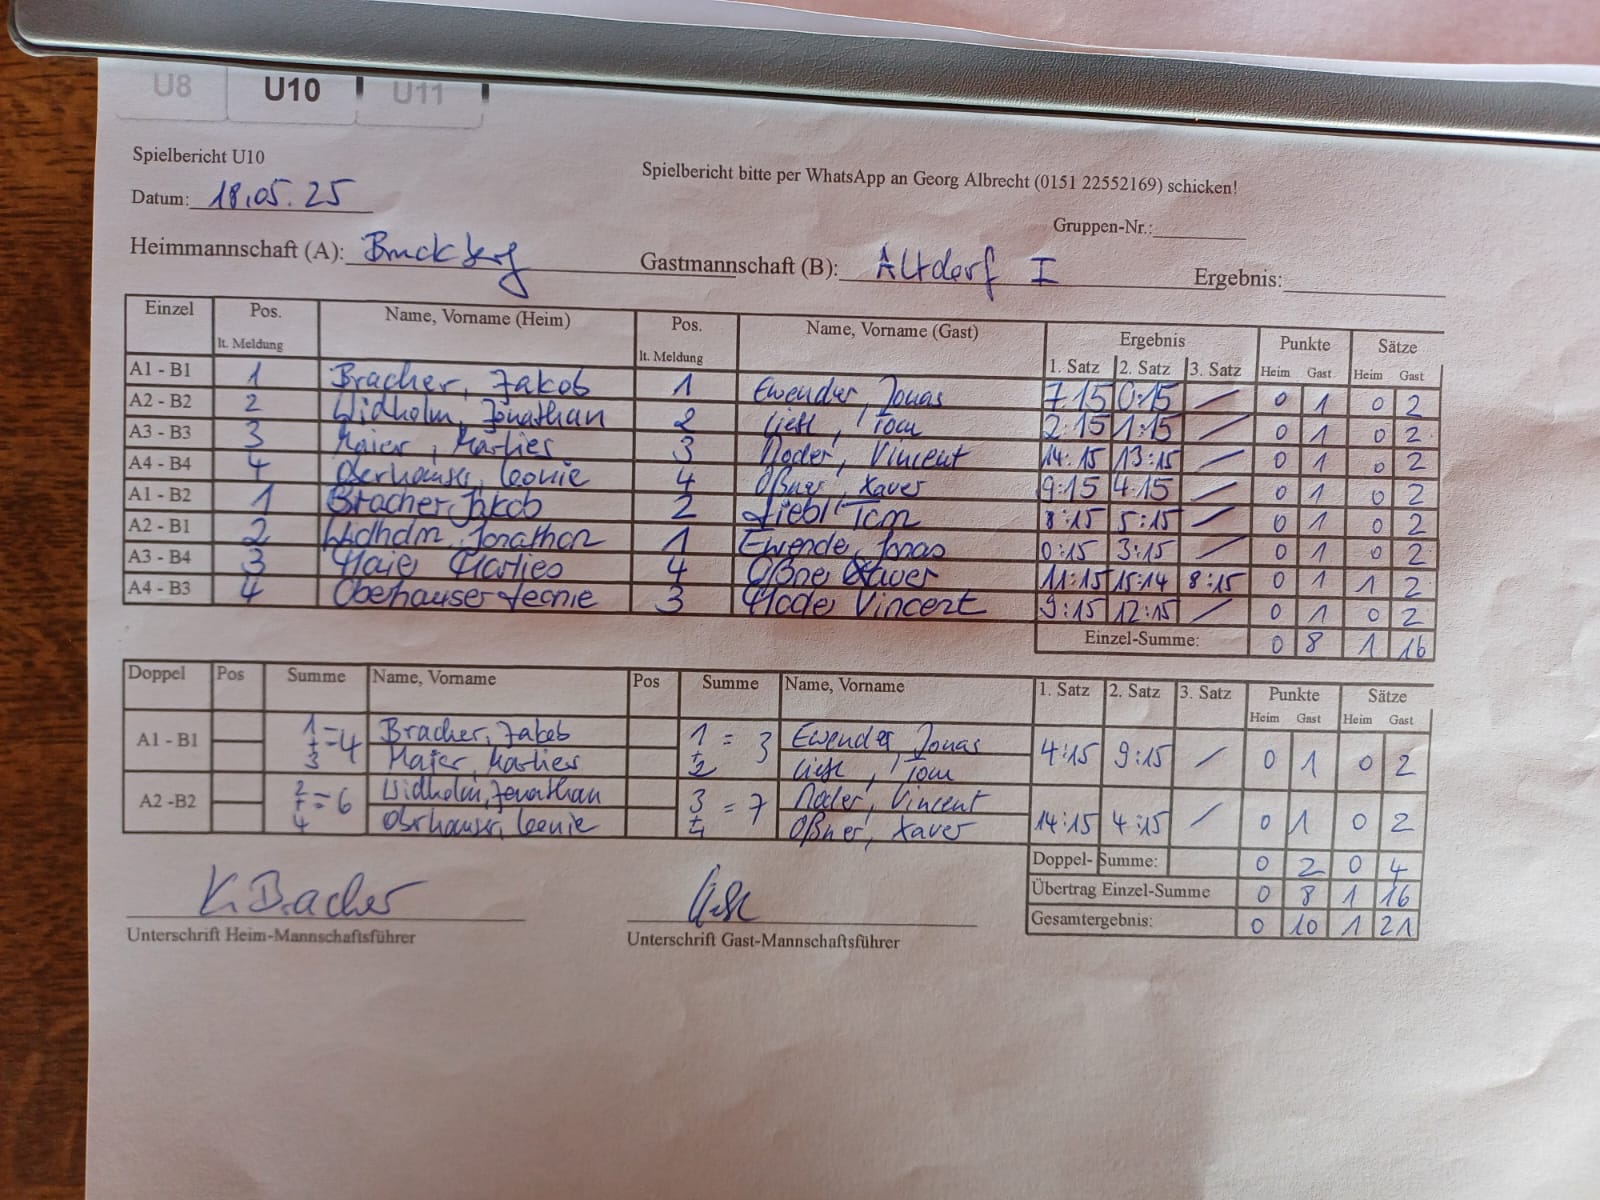 U8 U10 U11
Spielbericht U10
Spielbericht bitte per WhatsApp an Georg Albrecht (0151 22552169) schicken!
Datum: 18.05.25
Gruppen-Nr.:
Heimmannschaft (A): Bruckberg Gastmannschaft (B): Altdorf I Ergebnis:
Einzel Pos. Name, Vorname (Heim) Pos. Name, Vorname (Gast) Ergebnis Punkte Sätze
lt. Meldung lt. Meldung 1. Satz 2. Satz 3. Satz Heim Gast Heim Gast
A1 - B1 1 Bracher, Jakob 1 Ewender, Jonas 7:15 0:15 / 0 1 0 2
A2 - B2 2 Widholm, Jonathan 2 Liebl, Tom 2:15 1:15 / 0 1 0 2
A3 - B3 3 Maier, Marlies 3 Vincent 14:15 13:15 / 0 1 0 2
A4 - B4 4 Oberhauser, Leonie 4 Oßner, Xaver 9:15 4:15 / 0 1 0 2
A1 - B2 1 Bracher, Jakob 2 Liebl Tom 8:15 5:15 / 0 1 0 2
A2 - B1 2 Widholm, Jonathan 1 Ewende, Jonas 0:15 3:15 / 0 1 0 2
A3 - B4 3 Maie Marlies 4 Oßne Xaver 11:15 15:14 8:15 0 1 1 2
A4 - B3 4 Obehauser Leonie 3 Vincent 9:15 12:15 / 0 1 0 2
Einzel-Summe: 0 8 1 16
Doppel Pos Summe Name, Vorname Pos Summe Name, Vorname 1. Satz 2. Satz 3. Satz Punkte Sätze
Heim Gast Heim Gast
A1 - B1 1+3=4 Bracher, Jakob 1+2=3 Ewender, Jonas 4:15 9:15 / 0 1 0 2
Maier, Marlies Liebl, Tom
A2 -B2 2+4=6 Widholm, Jonathan 3+4=7 Vincent 14:15 4:15 / 0 1 0 2
Obrhauser, Leonie Oßner, Xaver
Doppel- Summe: 0 2 0 4
Übertrag Einzel-Summe 0 8 1 16
Gesamtergebnis: 0 10 1 21
K. Bracher
Unterschrift Heim-Mannschaftsführer Unterschrift Gast-Mannschaftsführer